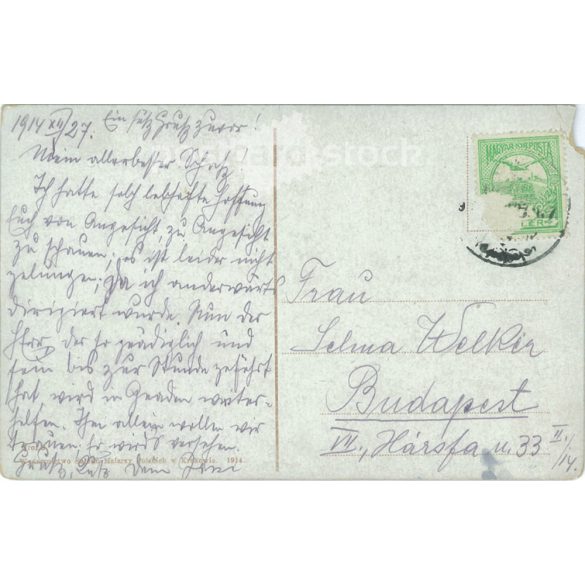 1914 XII/27. Ein süß Gruß zuvor!
Mein allerbester Schatz
Ich hatte solch lebhafte Hoffnung
Euch von Angesicht zu Angesicht
zu schauen; es ist leider nicht
gelungen, da ich anderwärts
dirigiert wurde. Nun der
Herr, der so gnädiglich und
fein bis zur Stunde geführt
hat, wird in Gnaden weiter-
helfen. Ihm allein wollen wir
trauen; Er wird's versehen.
Gruß, Kuß Dein
Frau
Selma Welker
Budapest
VII., Hársfa u. 33 II./14.
MAGYAR KIR. POSTA
w Krakowie. 1914.
postcard stock